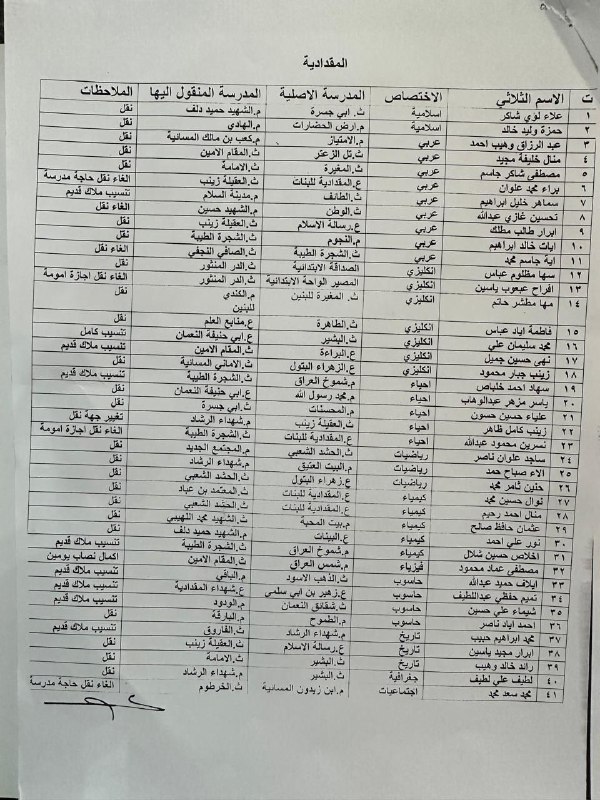 المقدادية
ت الاسم الثلاثي الاختصاص المدرسة الاصلية المدرسة المنقول اليها الملاحظات
١ علاء لؤي شاكر اسلامية ث. ابي جسرة م.الشهيد حميد دلف نقل
٢ حمزة وليد خالد اسلامية م.ارض الحضارات م.الهادي نقل
٣ عبد الرزاق وهيب احمد عربي م.الامتياز م.كعب بن مالك المسانية نقل
٤ منال خليفة مجيد عربي ث.تل الزعتر ث.المقام الامين نقل
٥ مصطفى شاكر جاسم عربي ث.المغيرة ث.الامامة نقل
٦ براء محمد علوان عربي ع.المقدادية للبنات ث.العقيلة زينب الغاء نقل حاجة مدرسة
٧ سماهر خليل ابراهيم عربي ث.الطائف م.مدينة السلام تنسيب ملاك قديم
٨ تحسين غازي عبدالله عربي ث.الوطن م.الشهيد حسين الغاء نقل
٩ ابرار طالب مطلك عربي ع.رسالة الاسلام ث.العقيلة زينب نقل
١٠ ايات خالد ابراهيم عربي م.النجوم ث.الشجرة الطيبة نقل
١١ اية جاسم محمد عربي ث.الشجرة الطيبة ث.الصافي النجفي الغاء نقل
١٢ سها مظلوم عباس انكليزي الصداقة الابتدائية ث.الدر المنثور نقل
١٣ افراح عبعوب ياسين انكليزي المصير الواحة الابتدائية ث.الدر المنثور الغاء نقل اجازة امومة
١٤ مها مطشر حاتم انكليزي ث. المغيرة للبنين م.الكندي نقل
للبنين
١٥ فاطمة اياد عباس انكليزي ث.الطاهرة ع.منابع العلم نقل
١٦ محمد سليمان علي انكليزي ث.البشير ث.ابي حنيفة النعمان تنسيب كامل
١٧ نهى حسين جميل انكليزي ع.البراءة ث.المقام الامين تنسيب ملاك قديم
١٨ زينب جبار محمود انكليزي ع.الزهراء البتول ث.الاماني المسانية نقل
١٩ سهاد احمد خلباص احياء م.شموخ العراق ث.الشجرة الطيبة تنسيب ملاك قديم
٢٠ ياسر مزهر عبدالوهاب احياء م.محمد رسول الله ث.ابي حنيفة النعمان نقل
٢١ علياء حسين حسون احياء م.المحسنات ث.ابي جسرة نقل
٢٢ زينب كامل ظاهر احياء ث.العقيلة زينب م.شهداء الرشاد تغيير جهة نقل
٢٣ نسرين محمود عبدالله احياء ع.المقدادية للبنات ث.الشجرة الطيبة الغاء نقل اجازة امومة
٢٤ ساجد علوان ناصر رياضيات ث.الحشد الشعبي م.المجتمع الجديد نقل
٢٥ الاء صباح حمد رياضيات م.البيت العتيق م.شهداء الرشاد نقل
٢٦ حنين ثامر محمد رياضيات ع.زهراء البتول ث.الحشد الشعبي نقل
٢٧ نوال حسين محمد كيمياء ع.المقدادية للبنات ث.المعتمد بن عباد نقل
٢٨ منال احمد رحيم كيمياء ع.المقدادية للبنات ث.الحشد الشعبي نقل
٢٩ عثمان حافظ صالح كيمياء م.بيت المحبة ث.الشهيد محمد اللهيبي نقل
٣٠ نور علي احمد كيمياء ع.البينات م.الشهيد حميد دلف نقل
٣١ اخلاص حسين شلال كيمياء م.شموخ العراق ث.الشجرة الطيبة تنسيب ملاك قديم
٣٢ مصطفى عماد محمود فيزياء م.شمس العراق ث.المقام الامين اكمال نصاب يومين
٣٣ ايلاف حميد عبدالله حاسوب ث.الذهب الاسود م.الباقي تنسيب ملاك قديم
٣٤ تميم حفظي عبداللطيف حاسوب ع.زهير بن ابي سلمى ع.شهداء المقدادية تنسيب ملاك قديم
٣٥ شيماء علي حسين حاسوب ث.شقائق النعمان م.الودود تنسيب ملاك قديم
٣٦ احمد اياد ناصر حاسوب م.الطموح م.البارقة نقل
٣٧ محمد ابراهيم حبيب تاريخ م.شهداء الرشاد ث.الفاروق تنسيب ملاك قديم
٣٨ ابرار مجيد ياسين تاريخ ع.رسالة الاسلام ث.العقيلة زينب نقل
٣٩ رائد خالد وهيب تاريخ ث.البشير ث.الامامة نقل
٤٠ لطيف علي لطيف جغرافية ث.البشير م.شهداء الرشاد نقل
٤١ محمد سعد محمد اجتماعيات م.ابن زيدون المسانية ث.الخرطوم الغاء نقل حاجة مدرسة